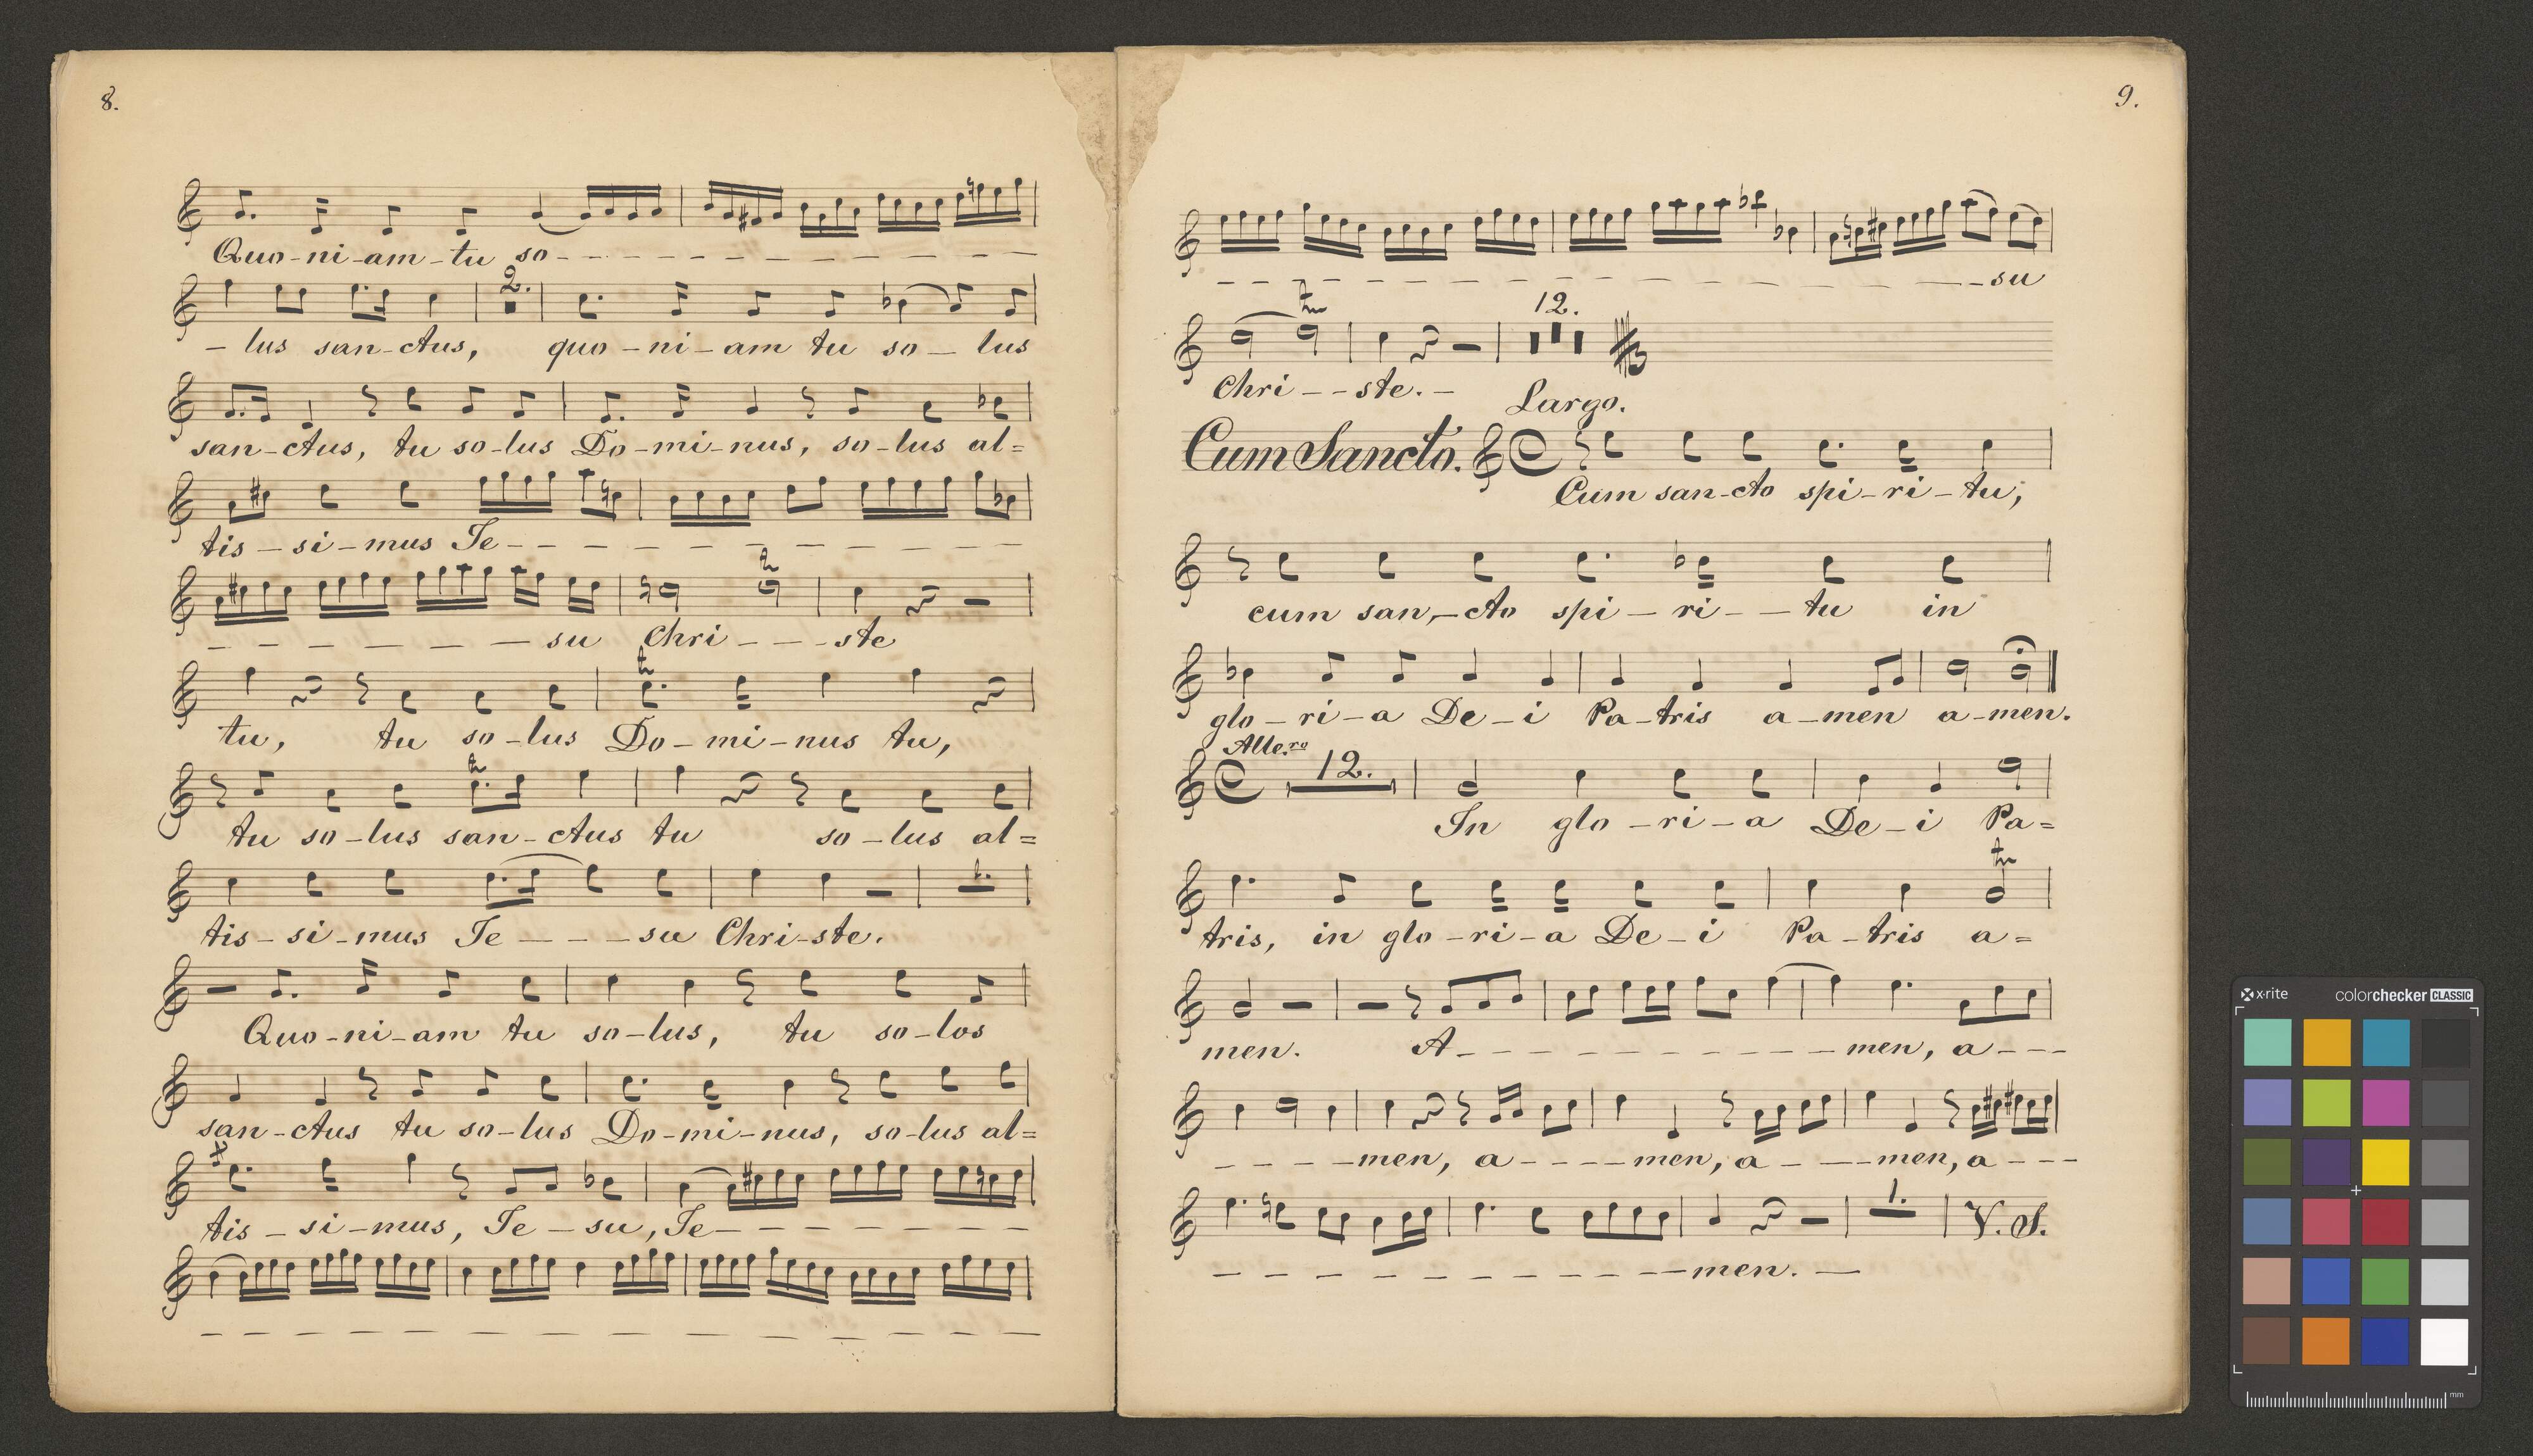 8.
Quo-ni-am-tu so- - - - - - - - - - -
2.
- lus san-ctus, quo-ni-am tu so- lus
san-ctus, tu so-lus Do-mi-nus, so-lus al=
tis-si-mus Je- - - - - - - - - -
- - - - - - su Chri- - - ste
tr
tu, tu so-lus Do-mi-nus tu,
tu so-lus san-ctus tu so-lus al=
1.
tis-si-mus Je- - - su Chri-ste.
Quo-ni-am tu so-lus, tu so-los
san-ctus tu so-lus Do-mi-nus, so-lus al=
tis-si-mus, Je-su, Je- - - - - - -
9.
- - - - - - - - - - - - su
tr 12.
Chri- - ste. - Largo.
Cum Sancto.
Cum san-cto spi-ri-tu,
cum san,-cto spi-ri- - tu in
glo-ri-a De-i Pa-tris a-men a-men.
Alle.ro 12.
In glo-ri-a De-i Pa=
tr
tris, in glo-ri-a De-i Pa-tris a=
men. A- - - - - - - - - men, a- - -
- - - - men, a- - - - men, a- - - men, a- - -
1. V. S.
- - - - - - - - - - men. -
x-rite colorchecker CLASSIC
mm